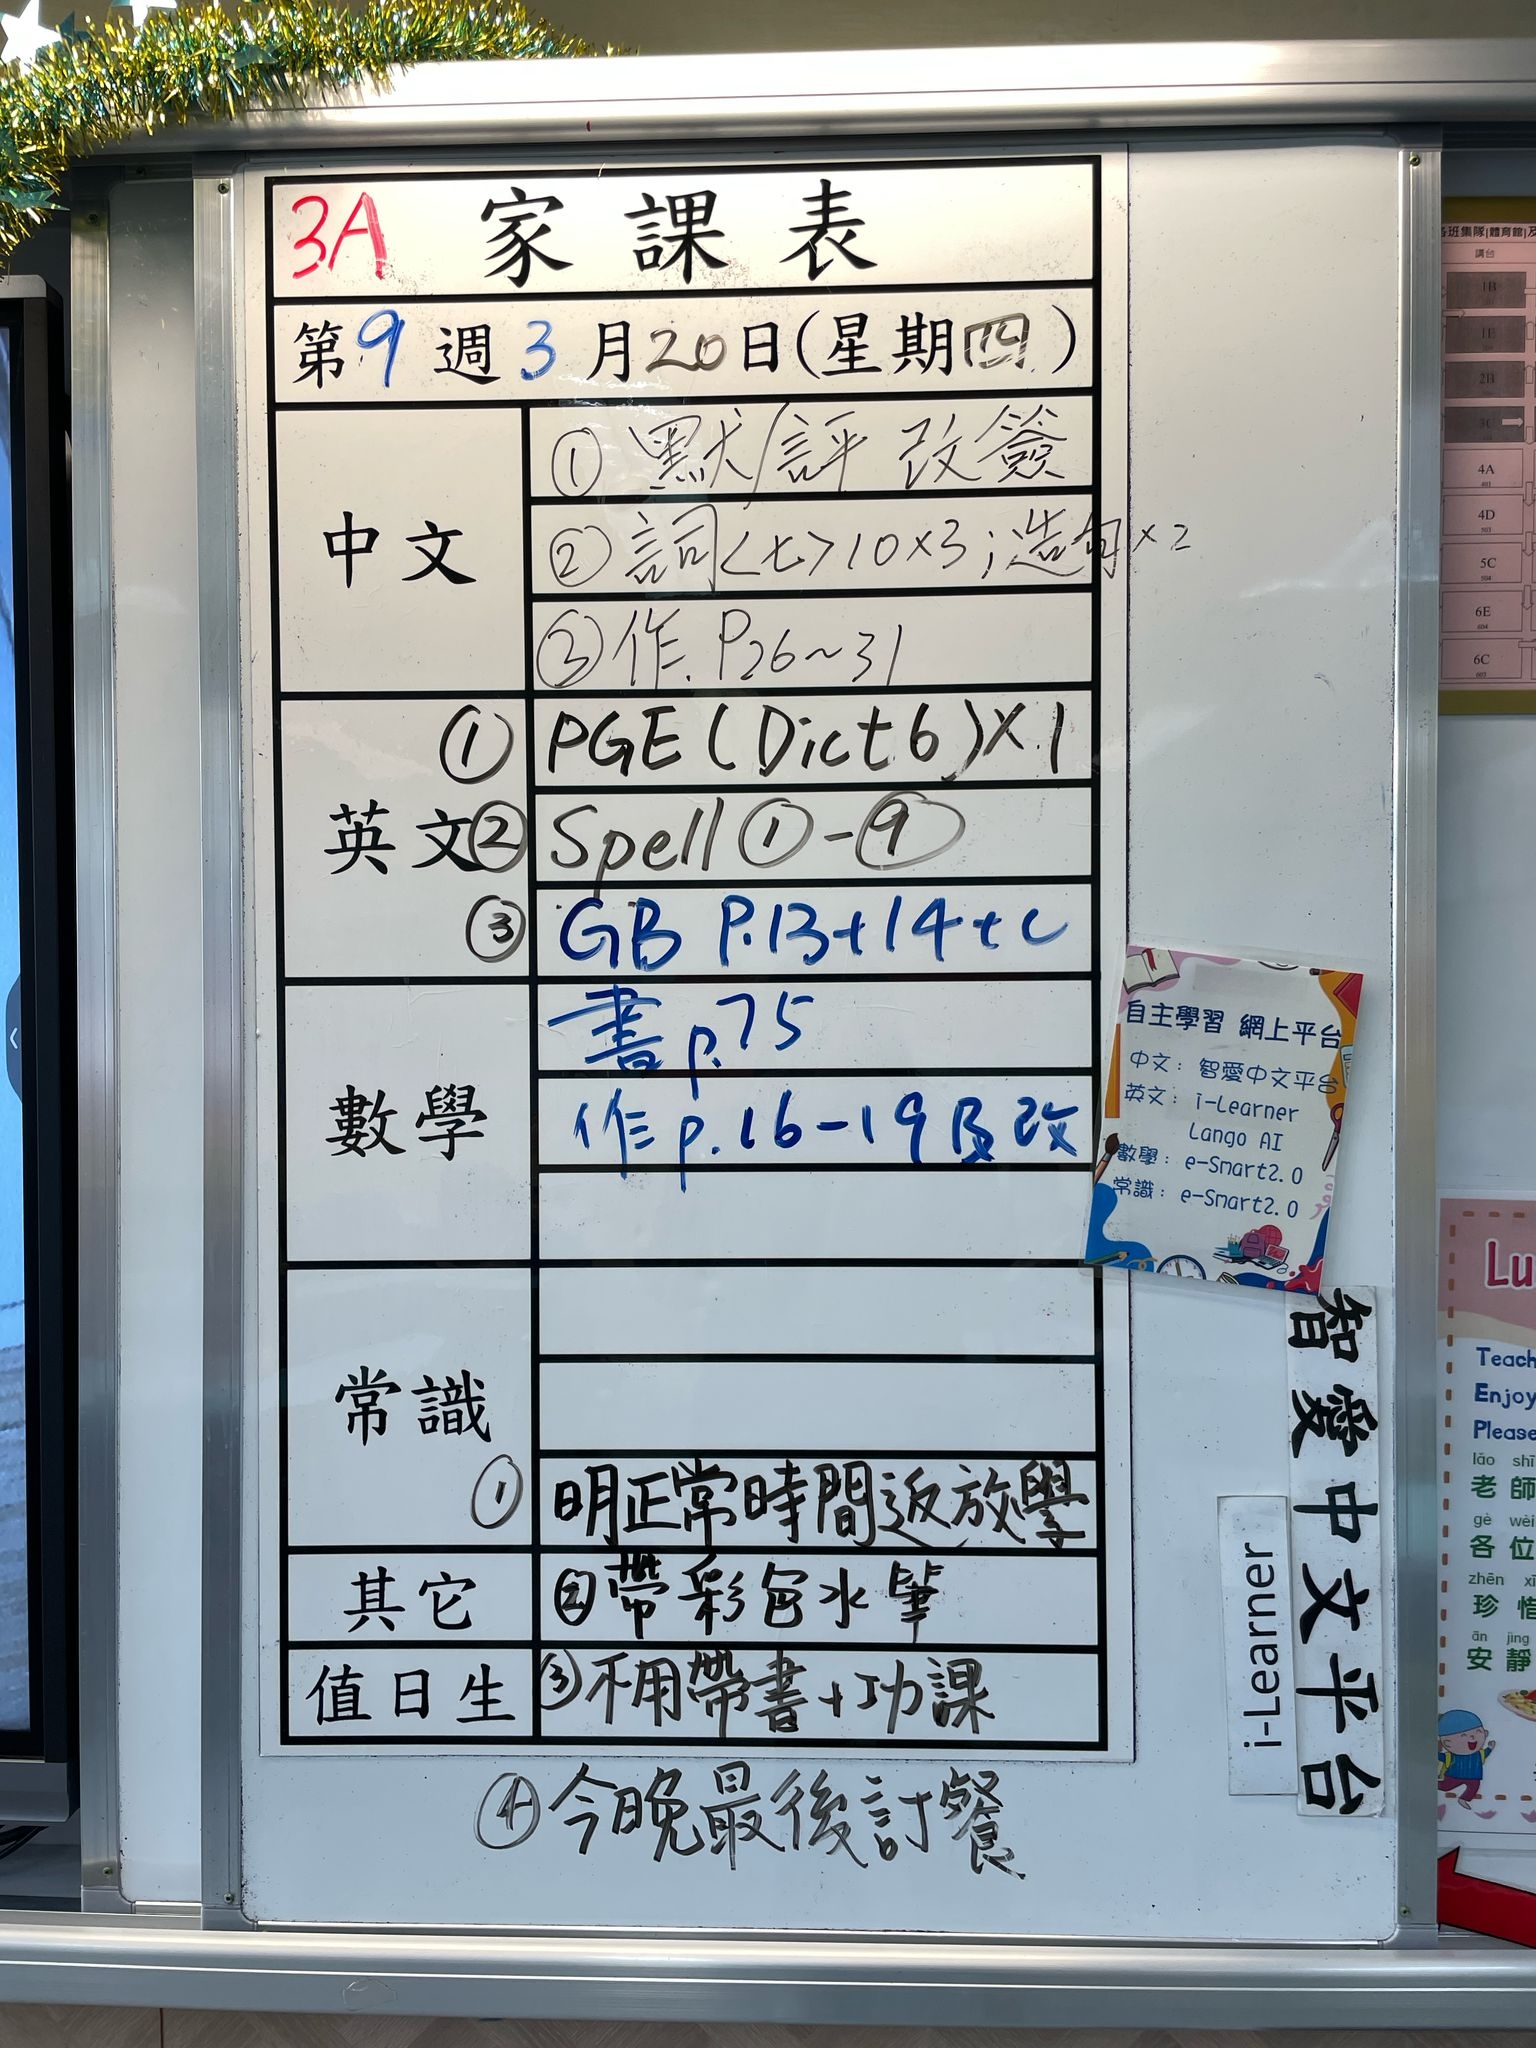 3A 家課表
第9週3月20日(星期四)
中文
① 默/評 改簽
② 詞<七>10×3;造句×2
③ 作.P26~31
英文
① PGE (Dict 6)×1
② Spell ①-⑨
③ GB P.13+14+c
數學
書p.75
作p.16-19及改
常識
① 明正常時間返放學
其它
②帶彩色水筆
值日生
③不用帶書+功課
④今晚最後訂餐
自主學習 網上平台
中文: 智愛中文平台
英文: i-Learner
Lango AI
數學: e-Smart2.0
常識: e-Smart2.0
智愛中文平台
i-Learner
各班集隊(體育館)及
講台
1B
1E
2B
4A
403
4D
503
5C
504
6E
604
6C
603
Lu
Teach
Enjoy
Please
lǎo shī
老師
gè wèi
各位
zhēn xī
珍惜
ān jìng
安靜